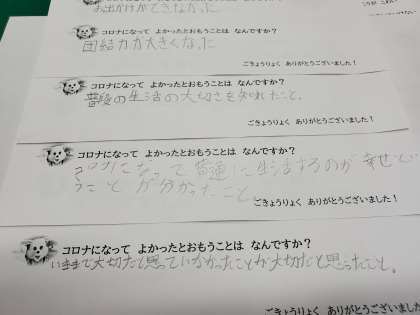 お出かけができなかった
コロナになって よかったとおもうことは なんですか？
団結力が大きくなった
ごきょうりょく ありがとうございました！
コロナになって よかったとおもうことは なんですか？
普段の生活の大切さを知れたこと。
ごきょうりょく ありがとうございました！
コロナになって よかったとおもうことは なんですか？
コロナになって普通に生活するのが幸せとい
うことが分かったこと
ごきょうりょく ありがとうございました！
コロナになって よかったとおもうことは なんですか？
いままで大切だと思っていなかったことが大切だと思ったこと。
ごきょうりょく ありがとうござい